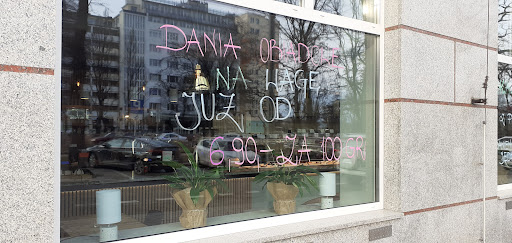 DANIA OBIADOWE
NA WAGĘ
JUŻ OD
6.90,- ZA 100GR